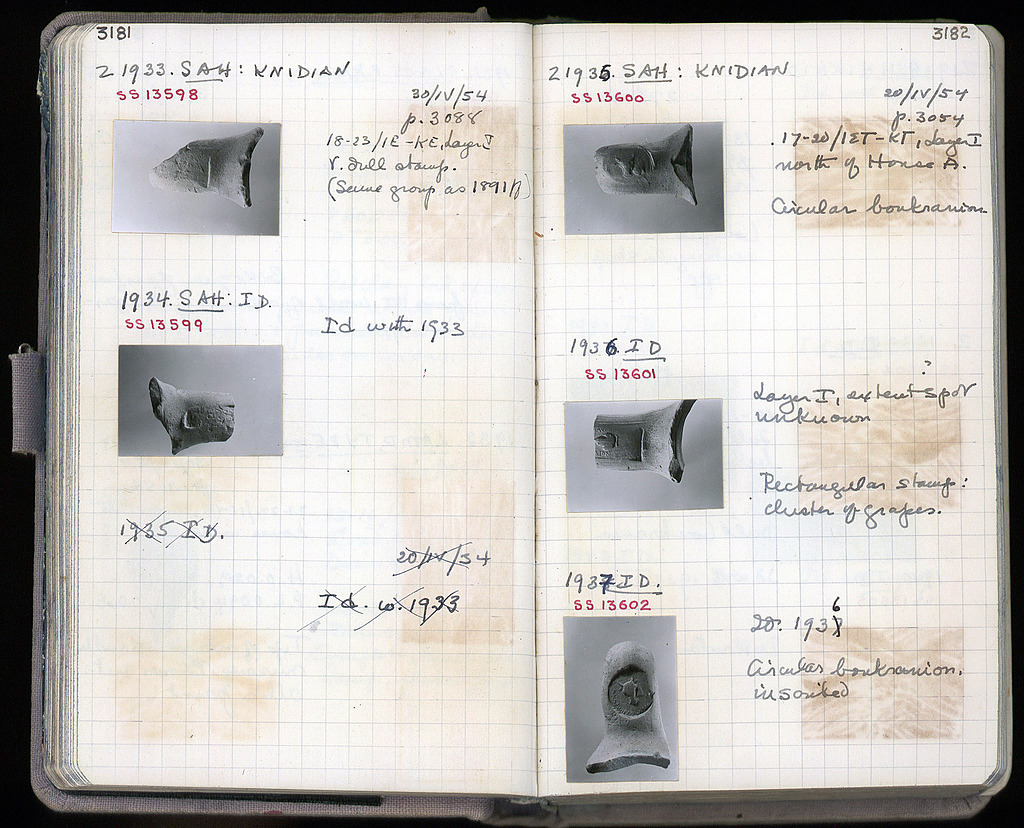 3181
Σ 1933. SAH: KNIDIAN
SS 13598
30/IV/54
p. 3088
18-23/IE-KE, Layer I
V. dull stamp.
(Same group as 1891 ff)
1934. SAH: ID.
SS 13599
Id with 1933
1935 ID.
20/IV/54
Id. w. 1933
3182
Σ 1935. SAH: KNIDIAN
SS 13600
20/IV/54
p. 3054
17-20/IET-KT, Layer I
north of House A.
Circular boukranion
1936. ID
SS 13601
?
Layer I, extent spot
unknown
Rectangular stamp:
cluster of grapes.
1937 ID.
SS 13602
6
1937
Circular boukranion.
inscribed